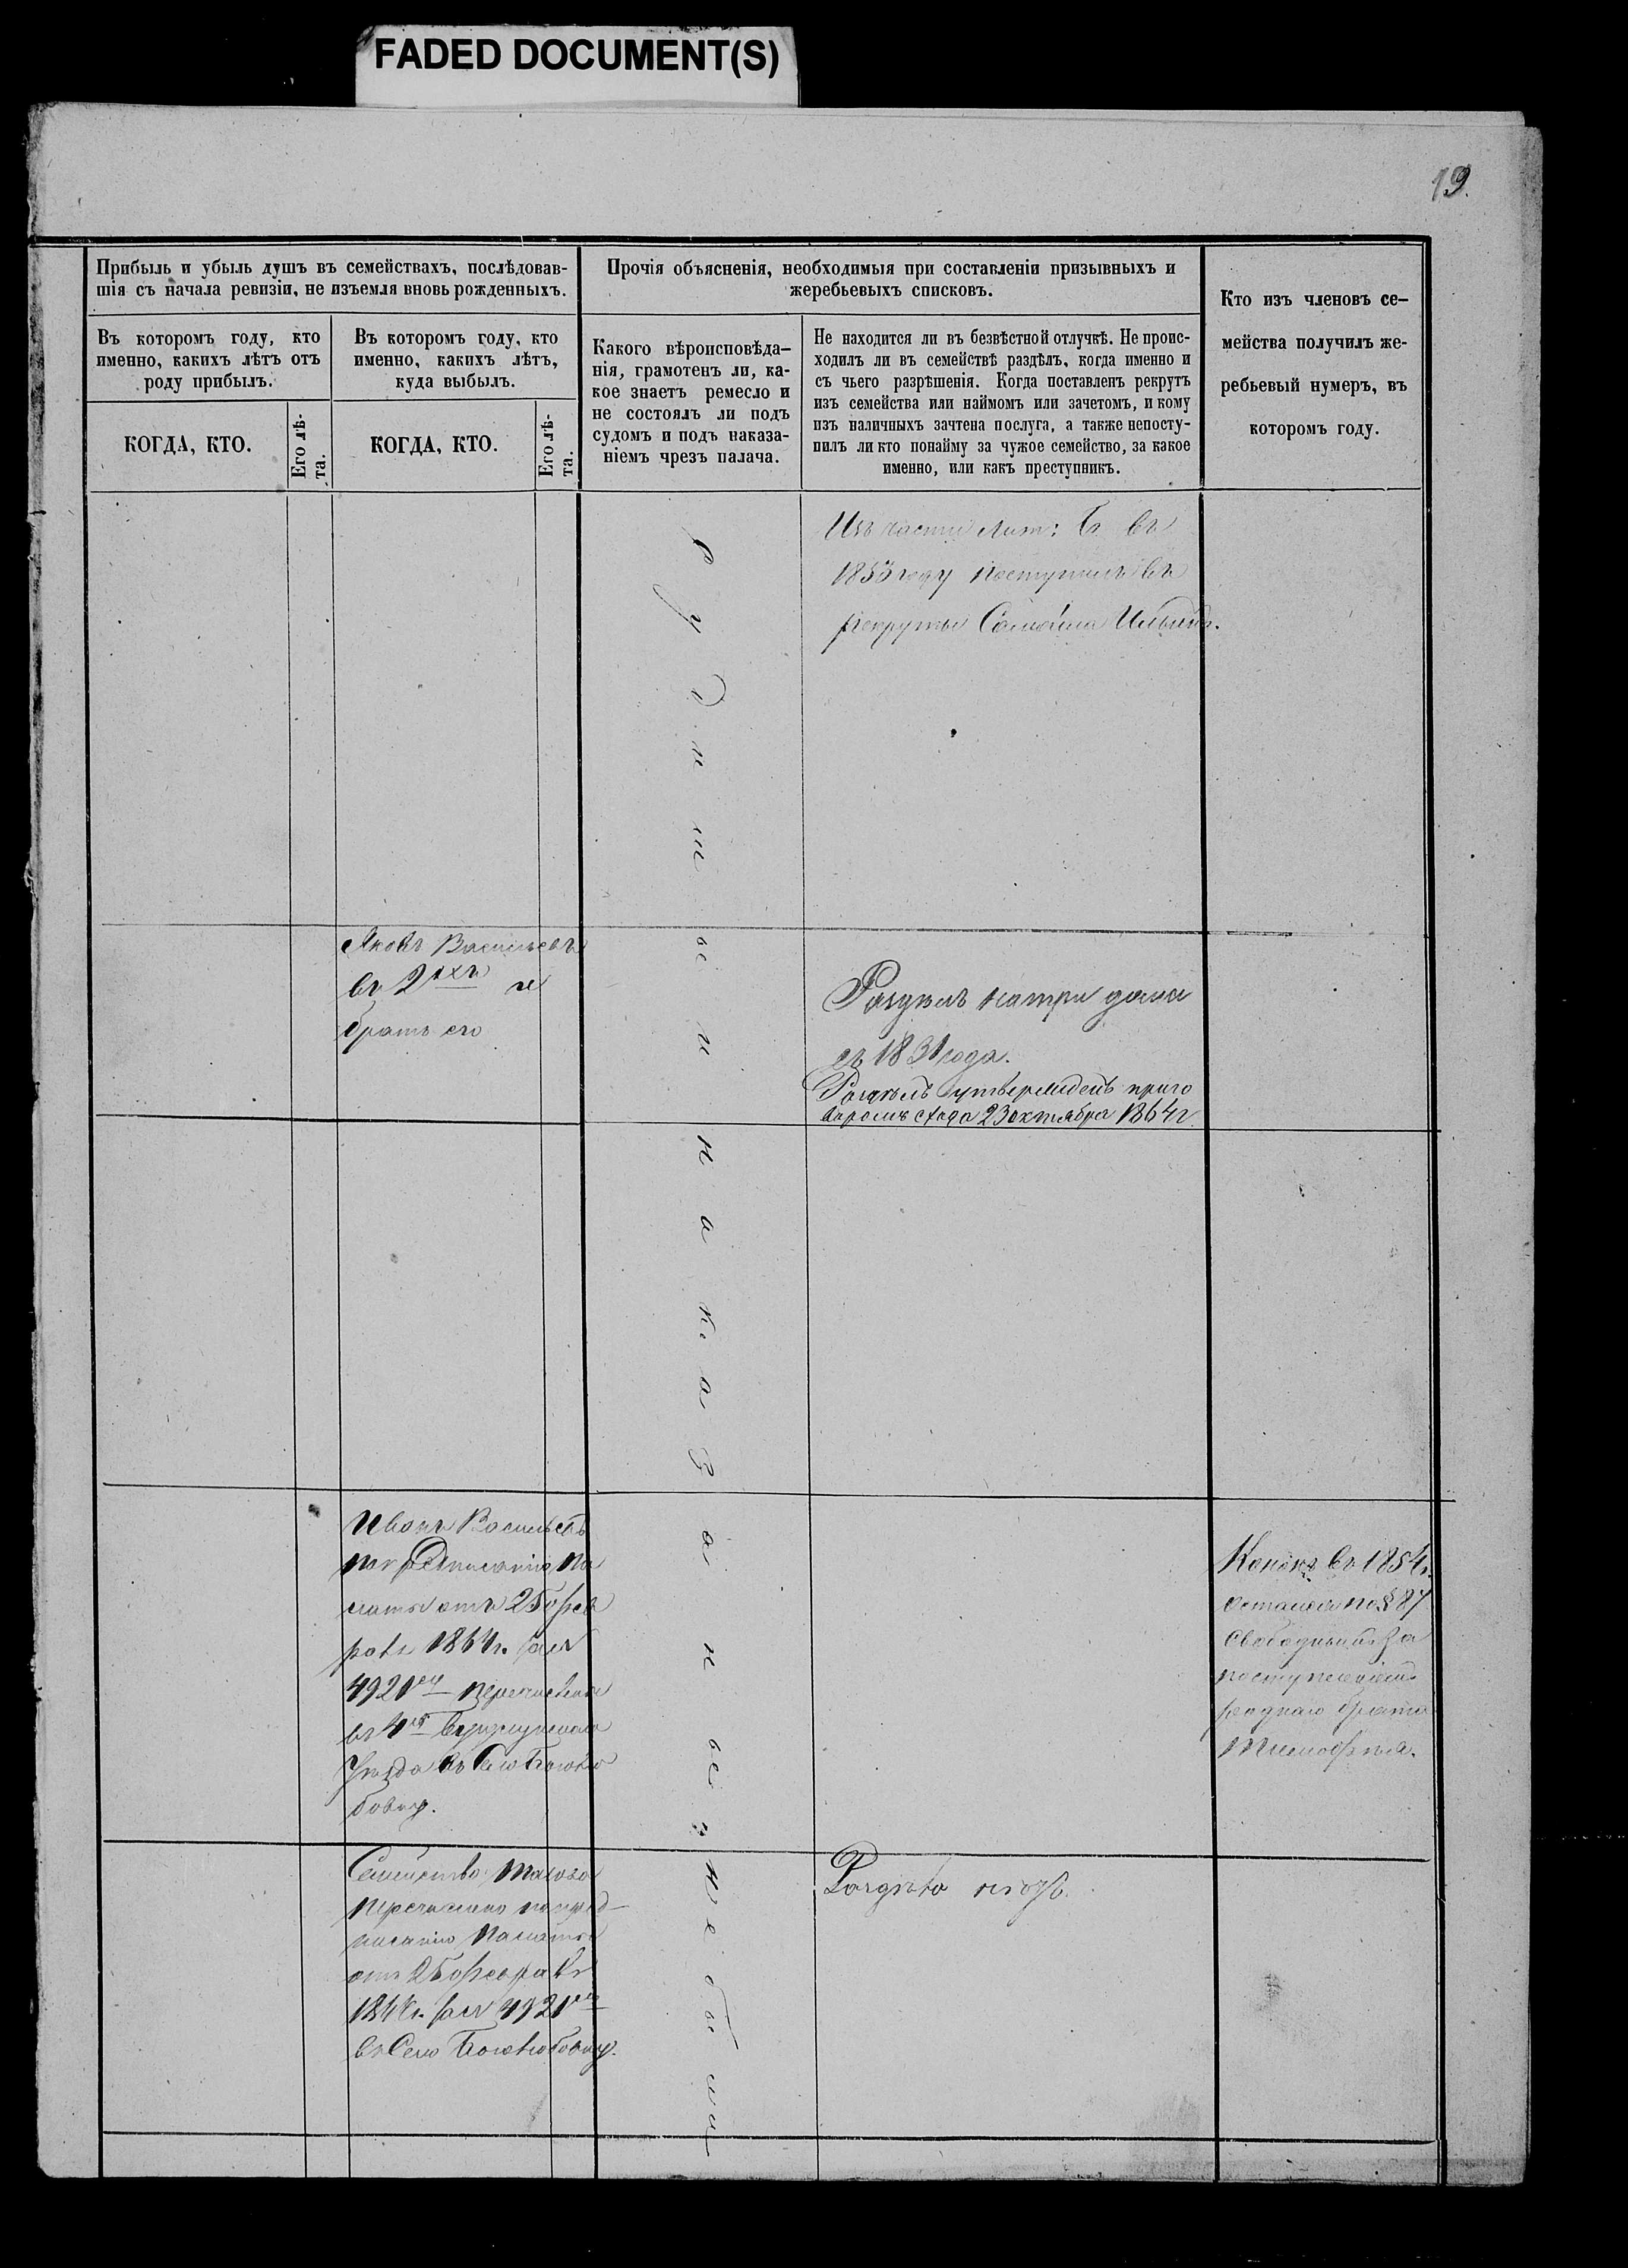 FADED DOCUMENT(S)
19.
Прибыль и убыль душъ въ семействахъ, послѣдовав-
шія съ начала ревизіи, не изъемля вновь рожденныхъ.
Въ которомъ году, кто
именно, какихъ лѣтъ отъ
роду прибылъ.
КОГДА, КТО.
Его лѣ-
та.
Въ которомъ году, кто
именно, какихъ лѣтъ,
куда выбылъ.
КОГДА, КТО.
Его лѣ-
та.
Прочія объясненія, необходимыя при составленіи призывныхъ и
жеребьевыхъ списковъ.
Какого вѣроисповѣда-
нія, грамотенъ ли, ка-
кое знаетъ ремесло и
не состоялъ ли подъ
судомъ и подъ наказа-
ніемъ чрезъ палача.
Не находится ли въ безвѣстной отлучкѣ. Не проис-
ходилъ ли въ семействѣ раздѣлъ, когда именно и
съ чьего разрѣшенія. Когда поставленъ рекрутъ
изъ семейства или наймомъ или зачетомъ, и кому
изъ наличныхъ зачтена послуга, а также непосту-
пилъ ли кто понайму за чужое семейство, за какое
именно, или какъ преступникъ.
Кто изъ членовъ се-
мейства получилъ же-
ребьевый нумеръ, въ
которомъ году.
Изъ части Лит: Б въ
1853 году поступилъ въ
рекруты Ильинъ.
Яковъ Васильевъ
въ 2хъ и
братъ его
Раздѣлъ натри дома
съ 1831 года.
Раздѣлъ утвержденъ приго
воромъ схода 23 октября 1864 г.
Иванъ Васильевъ
по предписанію Па
латы отъ 25 фев
раля 1864 г. за №
4920 перечисленъ
въ
Уѣзда въ Село Боголю
бовку.
Кононъ въ 1854 г.
остался по § 87
свободнымъ за
поступленіемъ
роднаго брата
Тимофѣя.
Семейство такого
перечислено по пред-
писанію Палаты
отъ 25 февраля
за № 4920
въ Село Боголюбовку.
Раздѣла